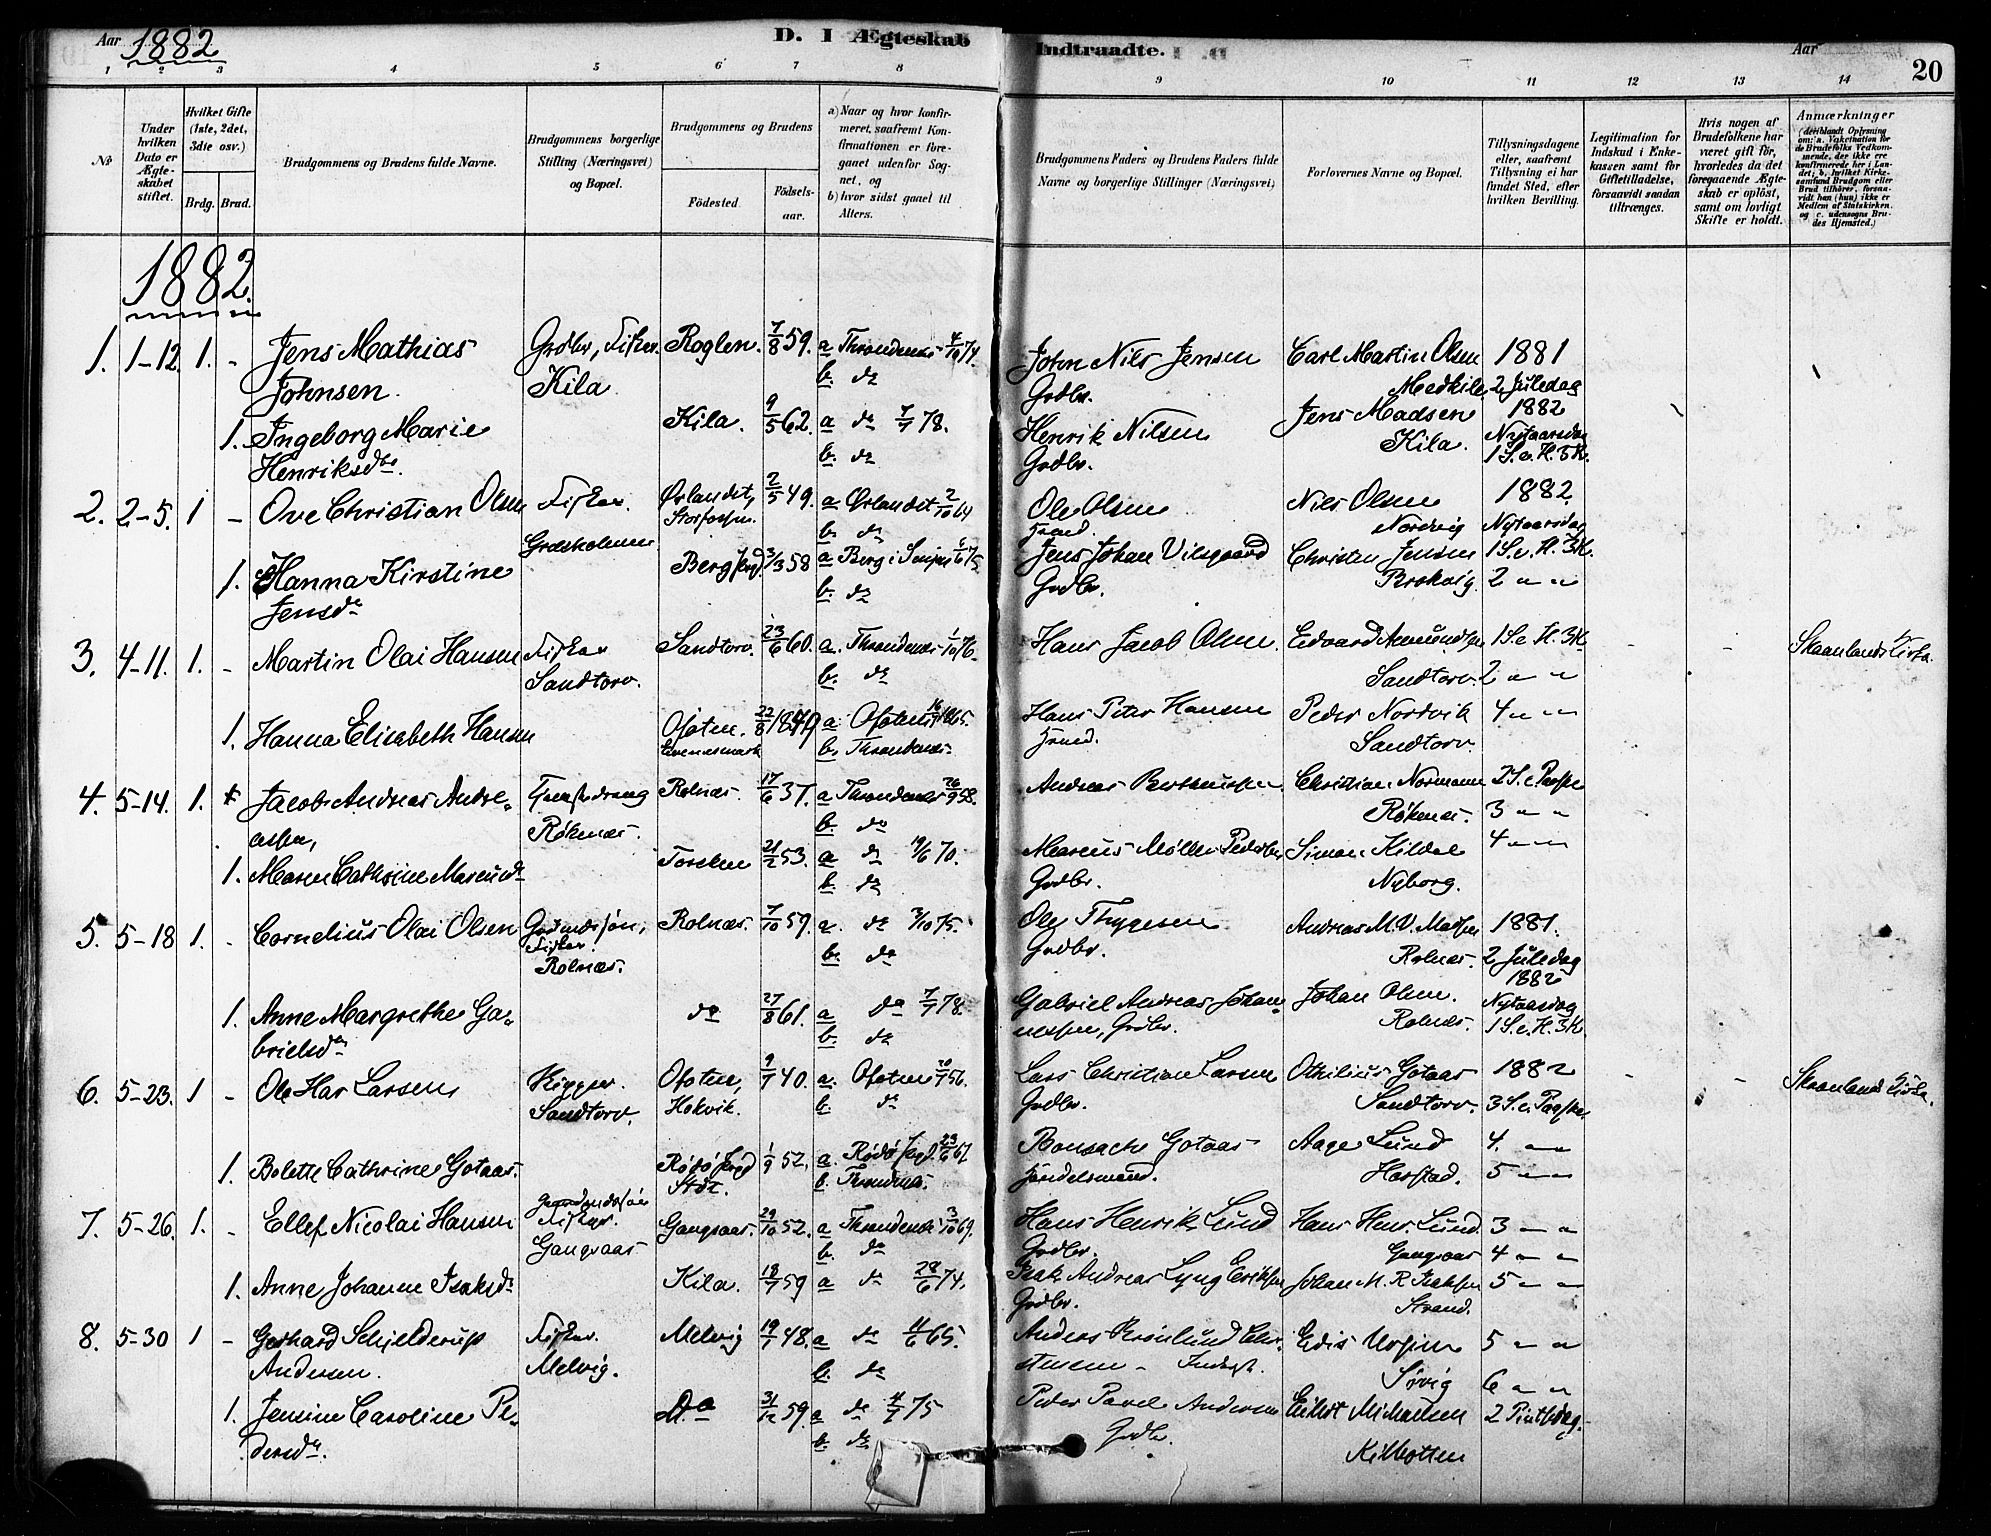 Aar 1882
D. I Ægteskab
Indtraadte.
Aar
20
1 2 3 4 5 6 7 8
9 10 11 12 13 14
No
Under hvilken Dato er Ægteskabet stiftet.
Hvilket Gifte (1ste, 2det, 3die osv.)
Brdg. Brud.
Brudgommens og Brudens fulde Navne.
Brudgommens borgerlige Stilling (Næringsvei) og Bopæl.
Brudgommens og Brudens
Fødested.
Fødselsaar.
a) Naar og hvor konfirmeret, saafremt Konfirmationen er foregaaet udenfor Sognet, og
b) hvor sidst gaaet til Alters.
Brudgommens Faders og Brudens Faders fulde Navne og borgerlige Stillinger (Næringsvei)
Forlovernes Navne og Bopæl.
Tillysningsdagene eller, saafremt Tillysning ei har fundet Sted, efter hvilken Bevilling.
Legitimation for Indskud i Enkekassen samt for Giftetilladelse, forsaavidt saadan tiltrænges.
Hvis nogen af Brudefolkene har været gift før, hvorledes da det foregaaende Ægteskab er opløst, samt om lovligt Skifte er holdt.
Anmærkninger
(deriblandt Oplysning om: a. Vakcination for de Brudefolks Vedkommende, der ikke ere konfirmerede her i Landet; b. hvilket Kirkesamfund Brudgom eller Brud tilhører, forsaavidt han (hun) ikke er Medlem af Statskirken, og c. udensogns Brudes Hjemsted.)
1882.
1. 1-12. 1. - Jens Mathias Grdbr, Fisker. Roglen. 7/8 59. a Throndenæs 4/10 74. John Nils Jensen Carl Martin Olsen 1881
Johnsen. Kila b. do Grdbr. Medkila 2 Juledag
1. Ingeborg Marie Kila. 9/5 62. a do 7/7 78. Henrik Nilsen Jens Madsen 1882
Henriksdtr. b. do Grdbr. Kila. Nytaarsdag
1 S. e. H. 3 K.
2. 2-5. 1 - Ove Christian Olsen Fisker. Ørlandet, 2/5 49. a Ørlandet 2/10 64 Ole Olsen Nils Olsen 1882
b. do Nordvig Nytaarsdag
1. Hanna Kirstine Berg 3/3 58 a Berg i Senjen 6/6 75. Jens Johan Christen Jensen 1 S. e. H. 3 K.
Jensdr b. do Grdbr. Brokvig. 2 " "
3. 4-11. 1. - Martin Olai Hansen Fisker Sandtorv. 23/6 60. a. Throndenæs 1/10 76. Hans Jacob Olsen. Edvard Amundsen 1 S. e. H. 3 K - - Skaanlands Kirke.
Sandtorv. b. do Sandtorv. 2 " "
1. Hanna Elisabeth Hansen Ofoten. 22/8 1849 a. Ofoten 65. Hans Peter Hansen Peder Nordvik 4 " "
Evenesmark b. Throndenæs. Sandtorv.
4. 5-14. 1. Jacob Andreas Andre- Røknæs. 17/6 37. a. Throndenæs 26/9 58. Andreas Christian Normann 2 S. e. Paaske
assen, Røknæs. b. do Røknæs. 3 " "
1. Maren Cathrine Marcusdr Torsken 21/2 53. a do 19/6 70. Marcus Møller Pedersen Simon Kildal 4 " "
b. do Grdbr. Nyborg.
5. 5-18 1. - Cornelius Olai Olsen Rolnæs. 7/10 57. a. do 3/10 75. Ole Thygesen Andreas M. V. 1881.
Fisker. Rolnæs. b. do Grdbr. Rolnæs. 2 Juledag
1882
1. Anne Margrethe Ga- do 27/8 61. a do 7/7 78. Gabriel Andreas Johan- Johan Olsen. Nytaarsdag
brielsdr b. do nessen, Grdbr. Rolnæs. 1 S. e. H. 3 K
6. 5-23. 1 - Ole Har Larsen Ofoten, 9/7 40. a. Ofoten 20/7 56. Lars Christian Larsen Othilius Gotaas 1882 - - Skaanland Kirke.
Sandtorv. Hokvik. b. do Grdbr. Sandtorv. 3 S. e. Paaske
1. Bolette Cathrine Gotaas. Rødø 1/9 52. a. Rødø 23/6 67. Gotaas Aage Lund 4. " "
b. Throndenæs. Handelsmand. Harstad. 5 " "
7. 5-26. 1. - Ellef Nicolai Hansen Fisker. Gangsaas. 29/10 52. a Throndenæs 3/10 69. Hans Henrik Lund Hans Hen. Lund. 3 " "
Gangsaas b. do Grdbr. Gangsaas 4 " "
1. Anne Johanne Isaksdr Kila. 18/7 59 a do 28/6 74. Isak Andreas Lyng Eriksen Johan M. R. Isaksen 5 " "
Grdbr. Strand.
8. 5-30 1 - Gerhard Schjelderup Fisker. Melvig 19/7 48. a do 11/6 65. Anders 5 " "
Andersen. Melvig. b. do Sørvig 6 " "
1. Jensine Caroline Pe- Do 31/12 59. a do 4/7 75 Peder Pavel Andersen 2 Pintsedag.
dersdr. b. do Grdbr. Kilbotten